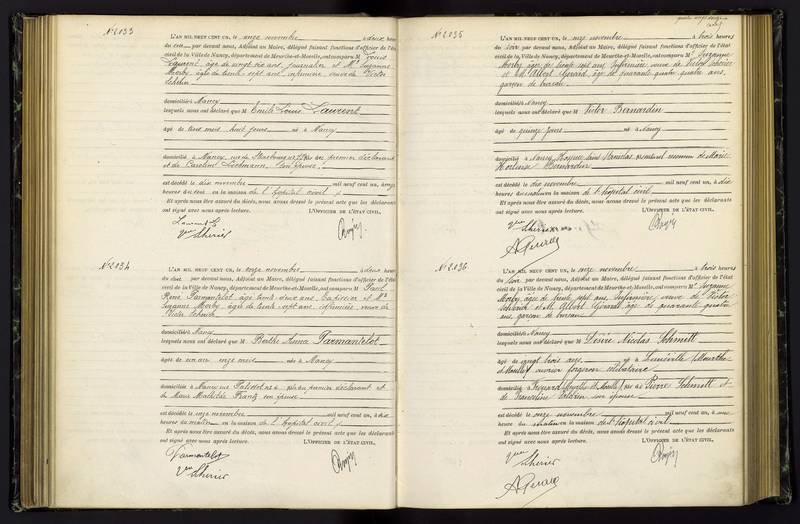 No 2033
L'AN MIL NEUF CENT UN, le onze novembre à deux heures
du soir par devant nous, Adjoint au Maire, délégué faisant fonctions d'officier de l'état
civil de la Ville de Nancy, département de Meurthe-et-Moselle, ont comparu M Louis
Laurent, âgé de vingt six ans, journalier et Me Suzanne
Morby, âgée de trente sept ans, infirmière, veuve de Victor
domiciliés à Nancy
lesquels nous ont déclaré que M Emile Louis Laurent
âgé de trois mois huit jours né à Nancy
domicilié à Nancy, rue de Strasbourg fils du premier déclarant
et de Caroline son épouse.
est décédé le dix novembre mil neuf cent un, à onze
heures du soir en la maison de l'hôpital civil
Et après nous être assuré du décès, nous avons dressé le présent acte que les déclarants
ont signé avec nous après lecture. L'OFFICIER DE L'ÉTAT CIVIL,
Laurent
No 2034
L'AN MIL NEUF CENT UN, le onze novembre à deux heures
du soir par devant nous, Adjoint au Maire, délégué faisant fonctions d'officier de l'état
civil de la Ville de Nancy, département de Meurthe-et-Moselle, ont comparu M Paul
René Parmantelot, âgé de trente deux ans, tapissier et Me
Suzanne Morby, âgée de trente sept ans infirmière, veuve de
Victor
domiciliés à Nancy
lesquels nous ont déclaré que M Berthe Anna Parmantelot
âgée de un an onze mois née à Nancy
domiciliée à Nancy rue fille du premier déclarant et
de Marie Mathilde Frantz son épouse
est décédée le onze novembre mil neuf cent un, à dix
heures du matin en la maison de l'hôpital civil
Et après nous être assuré du décès, nous avons dressé le présent acte que les déclarants
ont signé avec nous après lecture. L'OFFICIER DE L'ÉTAT CIVIL,
Parmantelot
No 2035
L'AN MIL NEUF CENT UN, le onze novembre à trois heures
du soir par devant nous, Adjoint au Maire, délégué faisant fonctions d'officier de l'état
civil de la Ville de Nancy, département de Meurthe-et-Moselle, ont comparu Me Suzanne
Morby, âgée de trente sept ans, infirmière, veuve de Victor
et M Albert Gérard, âgé de quarante quatre ans,
garçon de bureau
domiciliés à Nancy
lesquels nous ont déclaré que M Victor Bernardin
âgé de quinze jours né à Nancy
domicilié à Nancy, Hospice Saint Stanislas, fils naturel reconnu de Marie
Hortense Bernardin
est décédé le dix novembre mil neuf cent un, à dix
heures du en la maison de l'hôpital civil
Et après nous être assuré du décès, nous avons dressé le présent acte que les déclarants
ont signé avec nous après lecture. L'OFFICIER DE L'ÉTAT CIVIL,
A. Gérard
No 2036
L'AN MIL NEUF CENT UN, le onze novembre à trois heures
du soir par devant nous, Adjoint au Maire, délégué faisant fonctions d'officier de l'état
civil de la Ville de Nancy, département de Meurthe-et-Moselle, ont comparu Me Suzanne
Morby, âgée de trente sept ans, infirmière, veuve de Victor
et M Albert Gérard âgé de quarante quatre
ans, garçon de bureau
domiciliés à Nancy
lesquels nous ont déclaré que M Désiré Nicolas Schmitt
âgé de vingt trois ans né à Lunéville (Meurthe
et Moselle) ouvrier forgeron militaire
domicilié à Frouard (Meurthe et Moselle) fils de Pierre Schmitt et
de son épouse
est décédé le onze novembre mil neuf cent un, à une
heure du matin en la maison de l'hôpital civil
Et après nous être assuré du décès, nous avons dressé le présent acte que les déclarants
ont signé avec nous après lecture. L'OFFICIER DE L'ÉTAT CIVIL,
A. Gérard